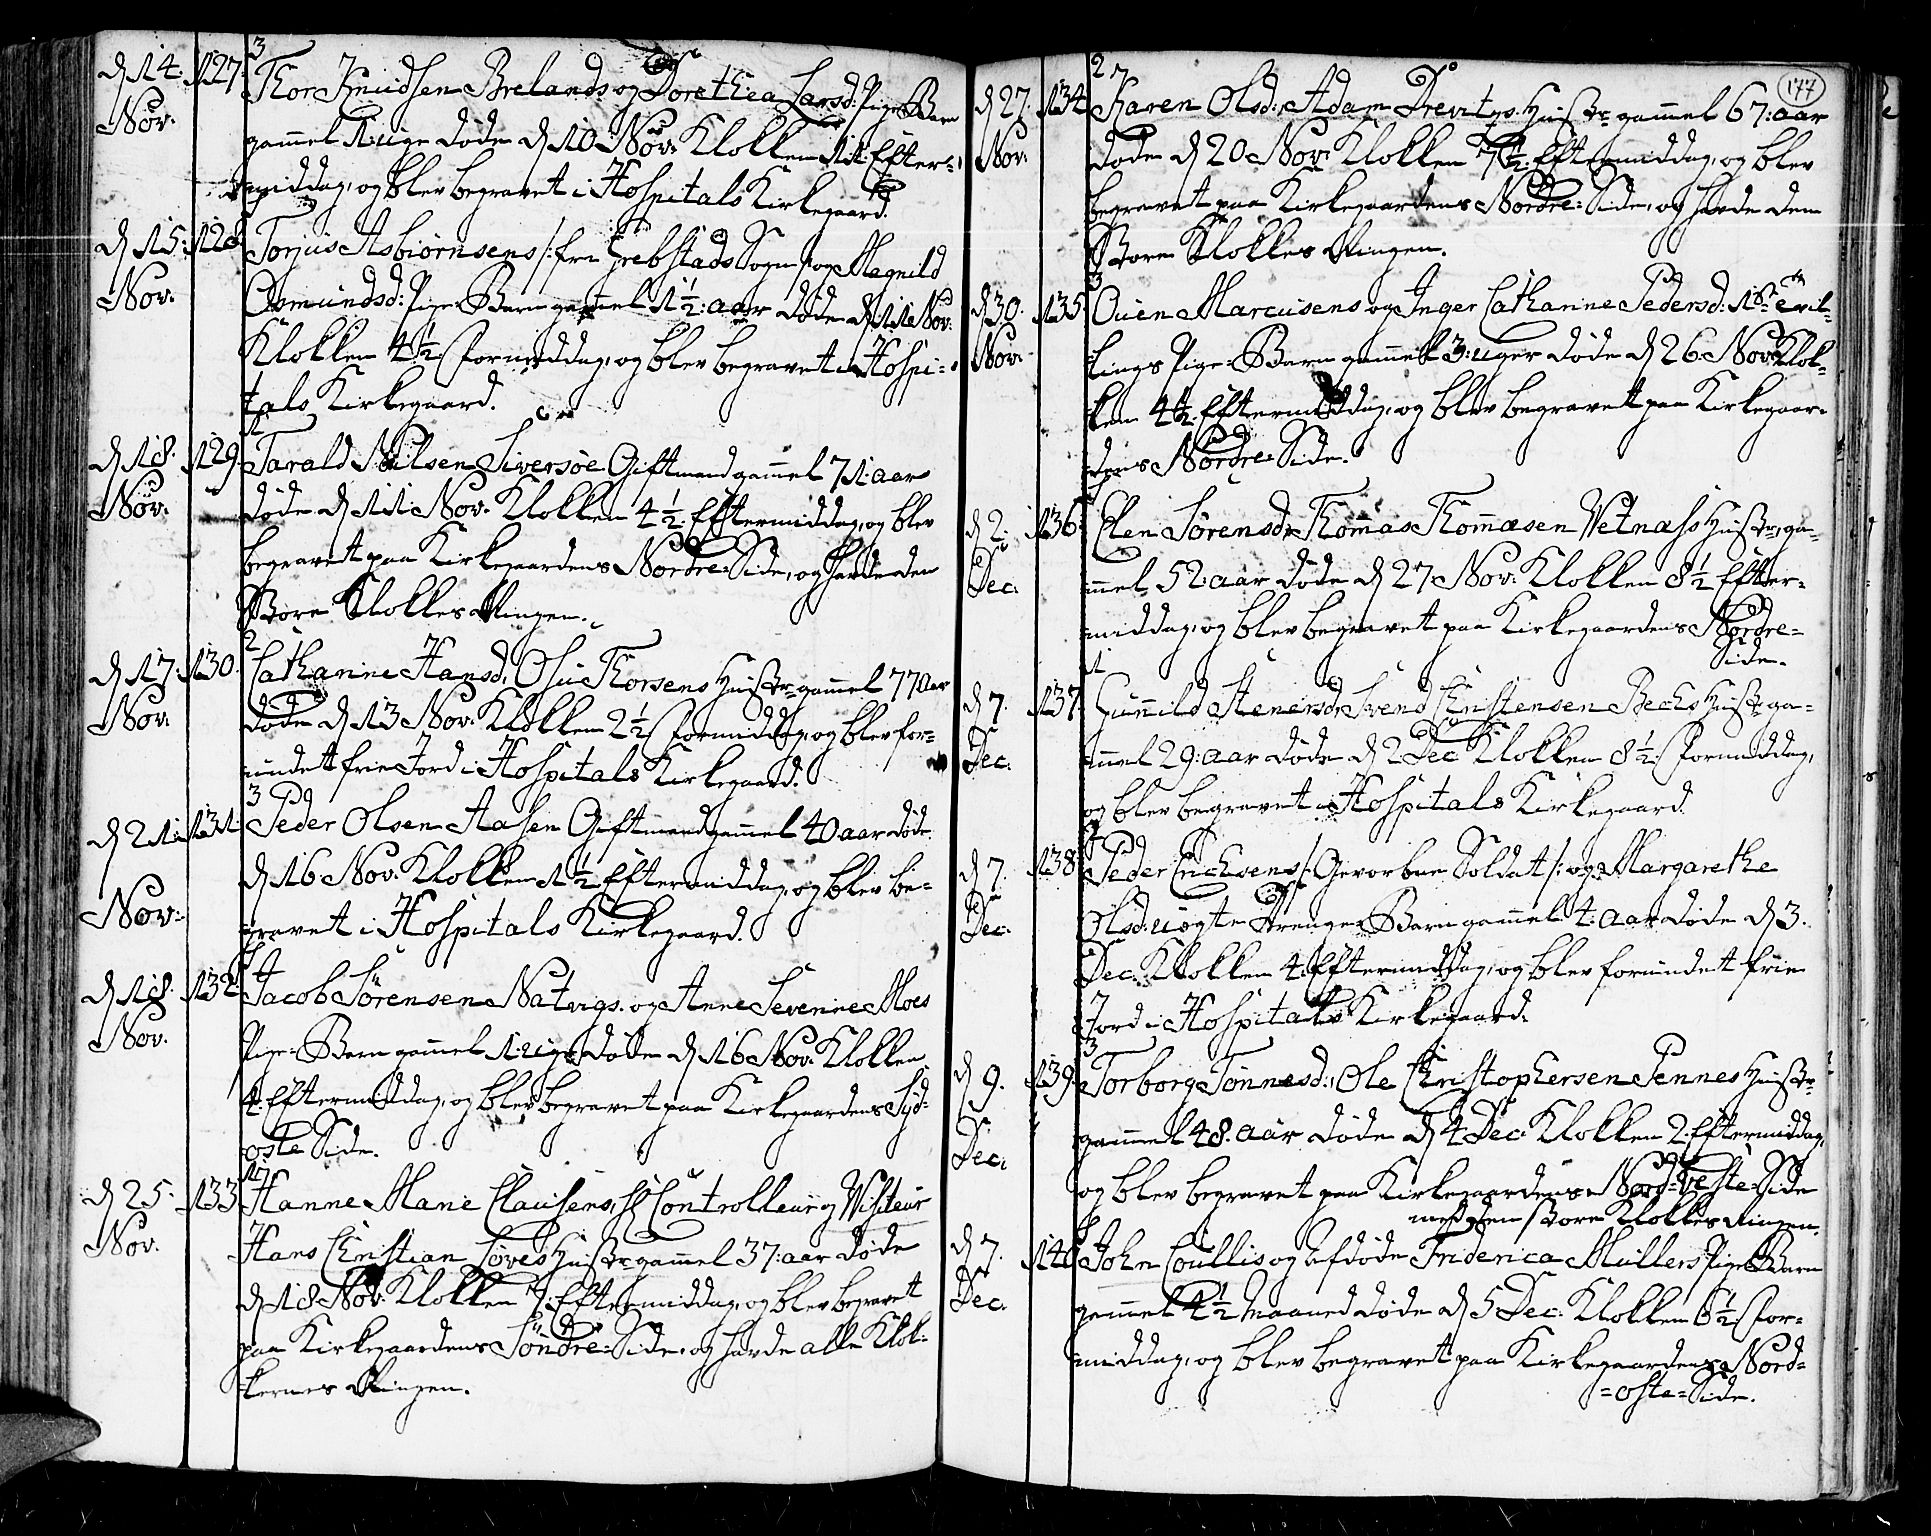 d. 14. 127. 3
Nov.
Thor Knudsen Brelands og Dorethea Larsd: Pige-Barn
gammel 1: uge døde d. 10 Nov. Klokken 11 Efter-
middag, og blev begravet i Hospitals Kirkegaard.
d. 15. 128
Nov.
Torjus Asbiørnsens /: fra Grebstads Sogn :/ og Magnild
Osmundsd: Pige-Barn gammel 1½: aar døde d. 11 Nov.
Klokken 4½ Formiddag, og blev begravet i Hospi-
tals Kirkegaard.
d. 18. 129. 1
Nov.
Tarald Nilsen Siversøe Giftmand gammel 71: aar
døde d. 11 Nov. Klokken 4½ Eftermiddag, og blev
begravet paa Kirkegaardens Nordre-Side, og havde den
Store Klokkes Ringen.
d. 17. 130. 2
Nov.
Cathanine Hansd, Osu Thorsens Hustr: gammel 77 aar
døde d. 13 Nov. Klokken 2½ Formiddag, og blev for-
undet frie Jord i Hospitals Kirkegaard.
d. 21. 131. 3
Nov.
Peder Olsen Aasen Giftmand gammel 40 aar døde
d. 16 Nov. Klokken 1½ Eftermiddag, og blev be-
gravet i Hospitals Kirkegaard.
d. 18. 132
Nov.
Jacob Sørensen Natvigs og Anne Severine Moes
Pige-Barn gammel 1: uge døde d. 16 Nov. Klokken
4. Eftermiddag, og blev begravet paa Kirkegaardens Syd-
oste Side.
d. 25. 133 17
Nov.
Hanne Marie Clausens, Controlleur og Visiteur
Hans Christian Løves Hustr: gammel 37: aar døde
d. 18 Nov. Klokken 7. Eftermiddag, og blev begravet
paa Kirkegaardens Søndre-Side, og havde alle Klok-
kernes Ringen.
177
d. 27. 134 2
Nov.
Karen Olsd: Adam Drevitzs Hustr: gammel 67: aar
døde d. 20 Nov. Klokken 7½ Eftermiddag, og blev
begravet paa Kirkegaardens Nordre-Side, og havde den
Store Klokkes Ringen.
d. 30. 135 3
Nov.
Ouen Marcusens og Inger Cathanine Pedersd: 1ste Tvil-
lings Pige-Barn gammel 3: uger døde d. 26 Nov. Klok-
ken 4½ Eftermiddag, og blev begravet paa Kirkegaar-
dens Nordre-Side.
d. 2. 136.
Dec.
Elen Sørensdr Thomas Thommesen Vetnæss Hustr: ga-
mmel 52: aar døde d. 27 Nov. Klokken 8½ Efter-
middag, og blev begravet paa Kirkegaardens Nordre-
Side.
d. 7. 137. 1
Dec.
Gunnild Stenersdr Svend Christensen Bechs Hustr: ga-
mmel 29: aar døde d. 2 Dec. Klokken 8½ Formiddag,
og blev begravet i Hospitals Kirkegaard.
d. 7. 138
Dec.
Peder Erichsens /: Gevorben Soldat :/ og Margarethe
Olsd: uægte Drenge-Barn gammel 4: aar døde d. 3.
Dec. Klokken 4. Eftermiddag, og blev forundet frie
Jord i Hospitals Kirkegaard.
d. 9. 139. 3
Dec.
Torborg Tønnesd:, Ole Christophersen Pennes Hustr:
gammel 48. aar døde d. 4 Dec. Klokken 2. Eftermiddag,
og blev begravet paa Kirkegaardens Nord-Veste-Side
med den store Klokkes Ringen.
d. 7. 140
Dec.
John Coullis og afdøde Friderica Mullers Pige Barn
gammel 4½ Maaned døde d. 5 Dec. Klokken 6½ For-
middag, og blev begravet paa Kirkegaardens Nord-
=oste=Side.